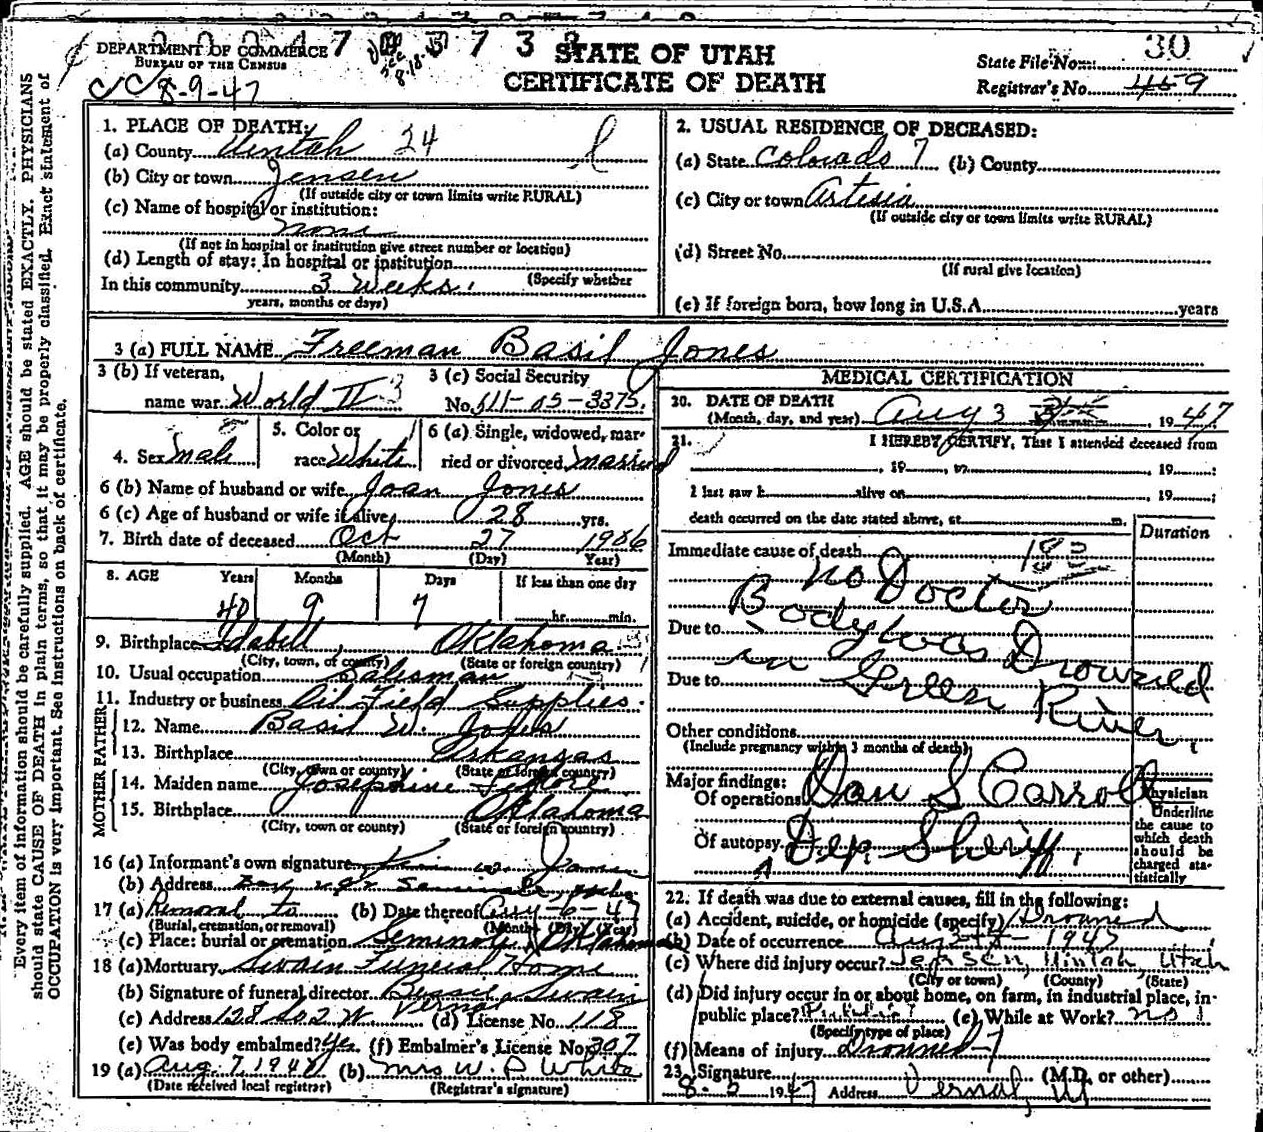 DEPARTMENT OF COMMERCE
BUREAU OF THE CENSUS
8-9-47
STATE OF UTAH
CERTIFICATE OF DEATH
30
State File No.
Registrar's No. 459
Every item of information should be carefully supplied. AGE should be stated EXACTLY. PHYSICIANS
should state CAUSE OF DEATH in plain terms, so that it may be properly classified. Exact statement of
OCCUPATION is very important. See instructions on back of certificate.
1. PLACE OF DEATH:
(a) County Uintah 24
(b) City or town Jensen
(If outside city or town limits write RURAL)
(c) Name of hospital or institution:
none
(If not in hospital or institution give street number or location)
(d) Length of stay: In hospital or institution
(Specify whether
In this community 3 Weeks.
years, months or days)
2. USUAL RESIDENCE OF DECEASED:
(a) State Colorado 7 (b) County
(c) City or town Artesia
(If outside city or town limits write RURAL)
(d) Street No.
(If rural give location)
(e) If foreign born, how long in U.S.A. years
3 (a) FULL NAME Freeman Basil Jones
3 (b) If veteran,
name war World II 3
3 (c) Social Security
No. 511-05-3375
4. Sex Male
5. Color or
race White
6 (a) Single, widowed, mar-
ried or divorced married
6 (b) Name of husband or wife Joan Jones
6 (c) Age of husband or wife if alive 28 yrs.
7. Birth date of deceased Oct 27 1906
(Month) (Day) (Year)
8. AGE Years Months Days If less than one day
40 9 7 hr. min.
9. Birthplace Idabell, Oklahoma
(City, town, or county) (State or foreign country)
10. Usual occupation Salesman
11. Industry or business Oil Field Supplies.
FATHER
12. Name Basil W. Jones
13. Birthplace Arkansas
(City, town or county) (State or foreign country)
MOTHER
14. Maiden name Josephine
15. Birthplace Oklahoma
(City, town or county) (State or foreign country)
16 (a) Informant's own signature
(b) Address
17 (a) Removal to (b) Date thereof Aug-6-47
(Burial, cremation, or removal) (Month) (Day) (Year)
(c) Place: burial or cremation Seminole, Oklahoma
18 (a) Mortuary Swain Funeral Home
(b) Signature of funeral director Bessie Swain
(c) Address 128 So 2 W. Vernal (d) License No. 118
(e) Was body embalmed? Yes. (f) Embalmer's License No. 307
19 (a) Aug. 7, 194 (b) Mrs W. P White
(Date received local registrar) (Registrar's signature)
MEDICAL CERTIFICATION
20. DATE OF DEATH
(Month, day, and year) Aug 3 1947
21. I HEREBY CERTIFY, That I attended deceased from
, 19 , to , 19 ;
I last saw h alive on , 19 ;
death occurred on the date stated above, at m.
Duration
Immediate cause of death 183
No Doctor
Due to Body was Drowned
Due to in Green River.
Other conditions
(Include pregnancy within 3 months of death)
Major findings:
Of operations Dan S Carroll
Of autopsy Dep. Sheriff.
Physician
Underline
the cause to
which death
should be
charged sta-
tistically
22. If death was due to external causes, fill in the following:
(a) Accident, suicide, or homicide (specify) Drowned
(b) Date of occurrence Aug 3 - 1947
(c) Where did injury occur? Jensen, Uintah, Utah
(City or town) (County) (State)
(d) Did injury occur in or about home, on farm, in industrial place, in
public place? (e) While at Work? no
(Specify type of place)
(f) Means of injury Drowned
23. Signature (M.D. or other)
1947 Address Vernal, Ut